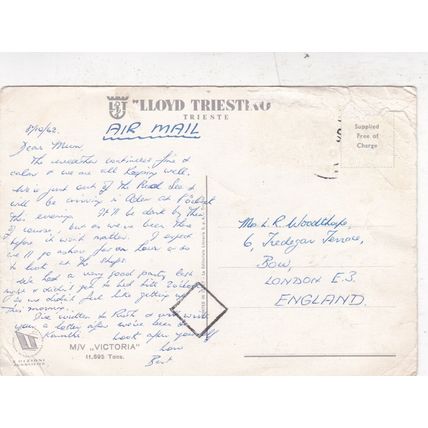 "LLOYD TRIESTINO
TRIESTE
Supplied
Free of
Charge
8/10/62.
AIR MAIL
Dear Mum
The weather continues fine &
calm & we are all keeping well.
just out of the Red Sea &
will be arriving in Aden at
this evening. It'll be dark by then,
of course, but as we've been there
before it won't matter. I expect
we'll go ashore for an hour or so
to look at the shops.
We had a very good party last
night & didn't get to bed till
so we didn't feel like getting up
this morning.
I've written to Ruth & will write
you a letter after we've been to
Karachi. Look after yourself
Love
Bert
Mrs. L. R. Woodthorpe,
6, Tredegar Terrace,
Bow,
LONDON E.3.
ENGLAND.
M/V „VICTORIA"
11.695 Tons.